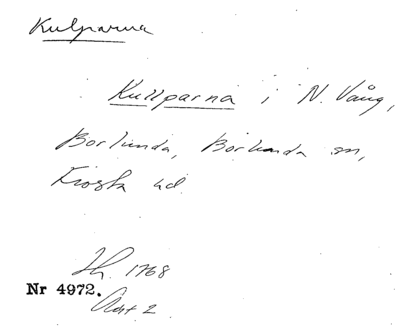 Kulparna
Kullparna i N. Vång,
Borlunda, Borlunda sn,
Frosta hd.
Sk. 1768
Nr 4972.
Akt 2